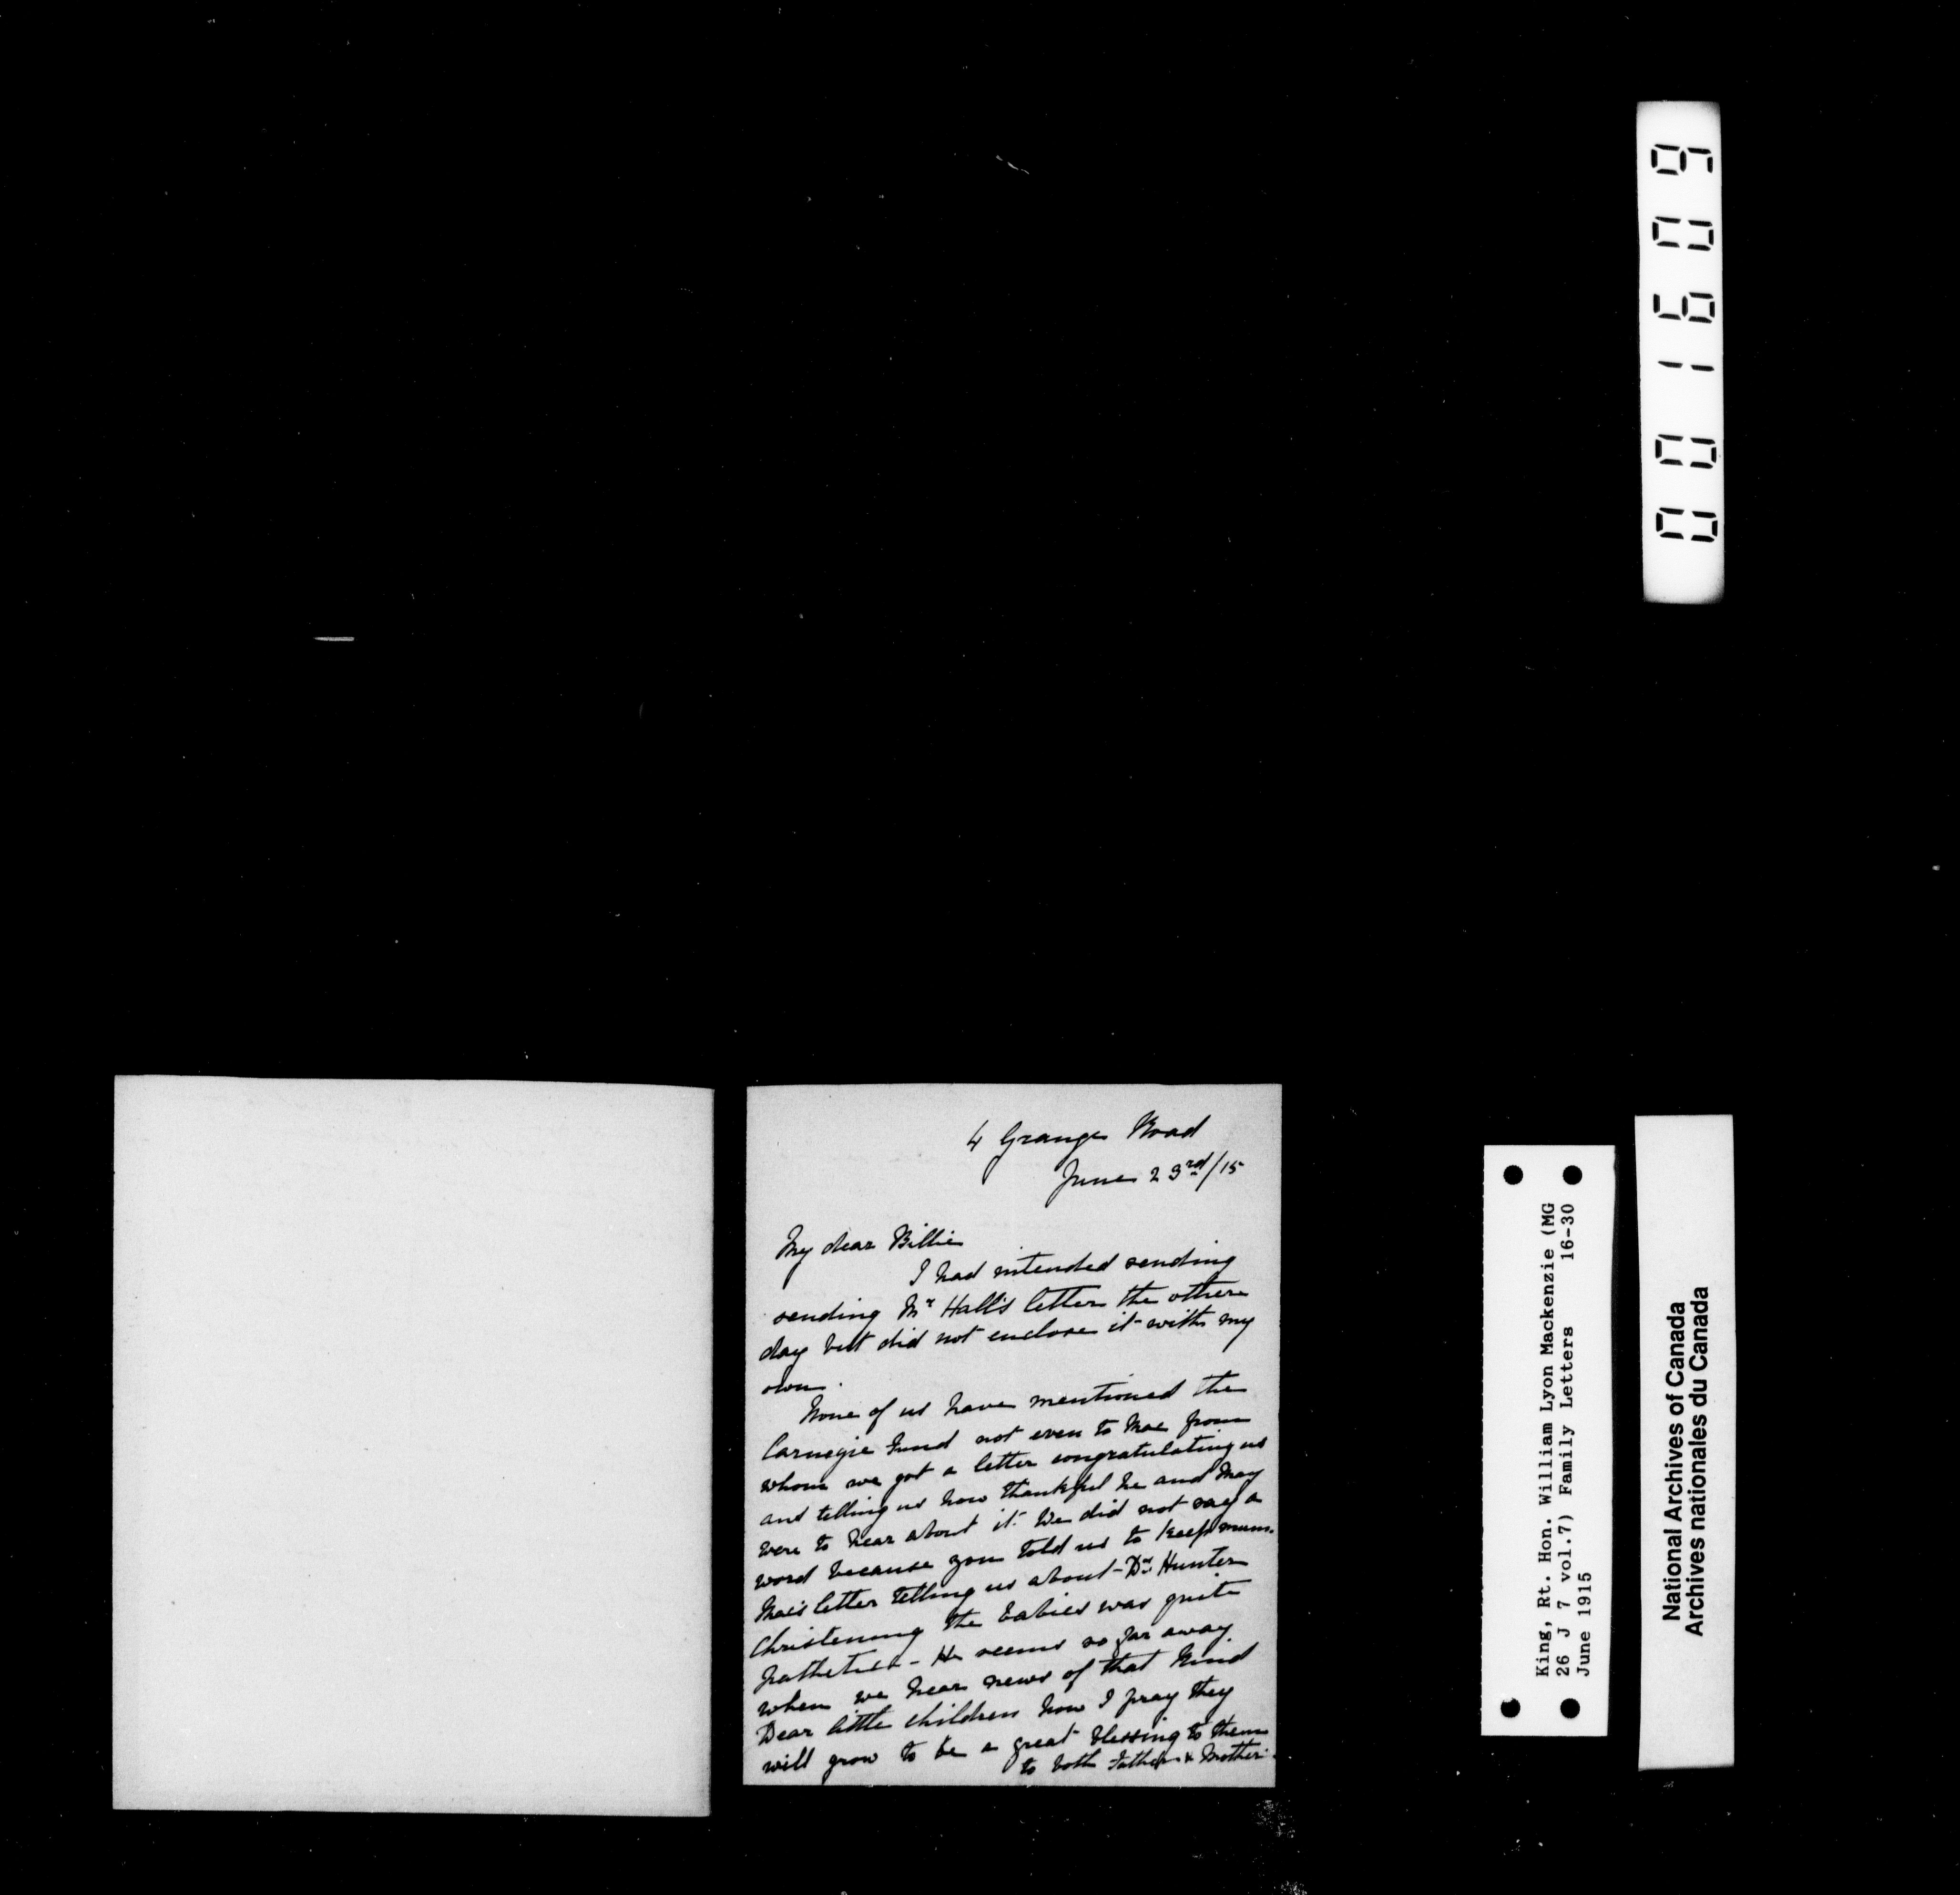 4 Grange Road
June 23rd/15
My dear Billie
I had intended sending
sending Mr Hall's letter the other
day but did not enclose it with my
own.
None of us have mentioned the
Carnegie Fund not even to Mac from
whom we got a letter congratulating us
and telling us how thankful he and May
were to hear about it. We did not say a
word because you told us to keep mum.
Mac's letter telling us about Dr. Hunter
Christening the babies was quite
pathetic - He seems so far away
when we hear news of that kind
Dear little children how I pray they
will grow to be a great blessing to them
to both Father & Mother.
001609
King, Rt. Hon. William Lyon Mackenzie (MG
26 J 7 vol.7) Family Letters 16-30
June 1915
National Archives of Canada
Archives nationales du Canada